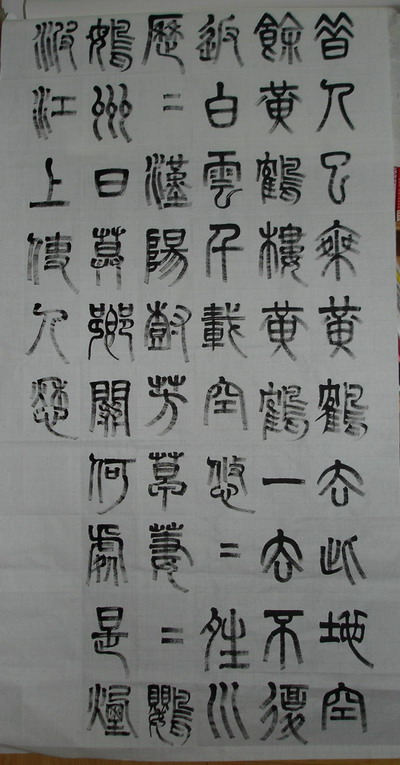 昔人已乘黃鶴去此地空
餘黃鶴樓黃鶴一去不復
返白雲千載空悠=夝川
歷=漢陽樹芳草萋=鸚
鵡州日暮鄉關何處是煙
波江上使人愁